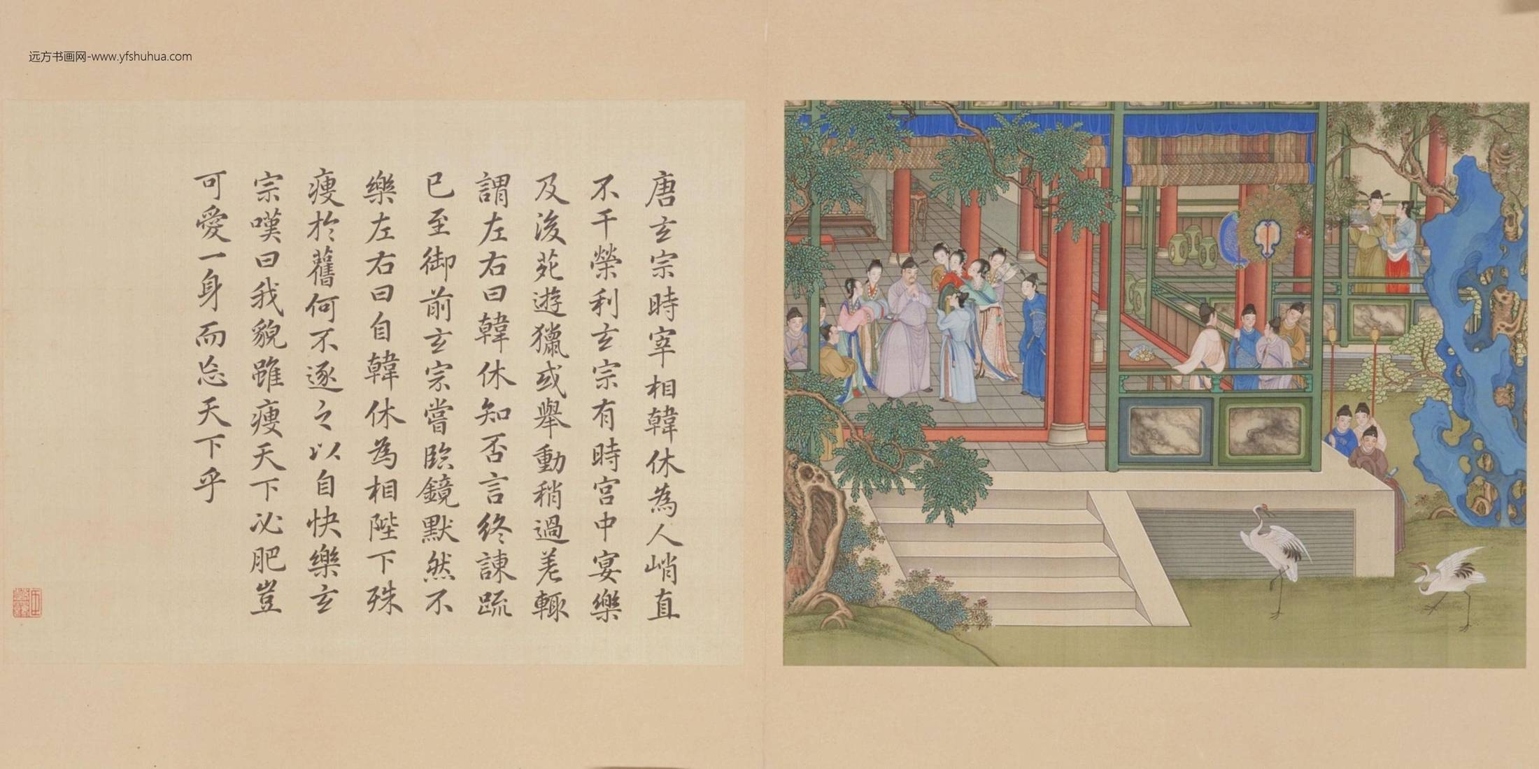 远方书画网-www.yfshuhua.com
唐玄宗時宰相韓休為人峭直
不干榮利玄宗有時宮中宴樂
及後苑遊獵或舉動稍過差輒
謂左右曰韓休知否言終諫疏
已至御前玄宗嘗臨鏡默然不
樂左右曰自韓休為相陛下殊
瘦於舊何不逐之以自快樂玄
宗嘆曰我貌雖瘦天下必肥豈
可愛一身而忘天下乎